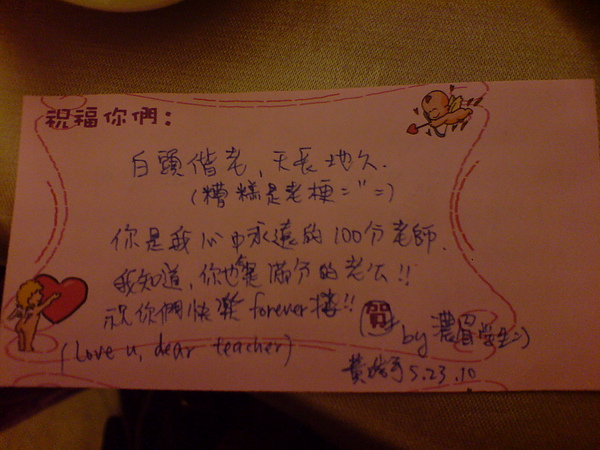 祝福你們:
白頭偕老,天長地久.
(糟糕是老梗="=)
你是我心中永遠的100分老師.
我知道,你也是滿分的老公!!
祝你們快樂forever摟!!
賀 by 濃眉學生:)
(Love u, dear teacher)
黃 5.23.10